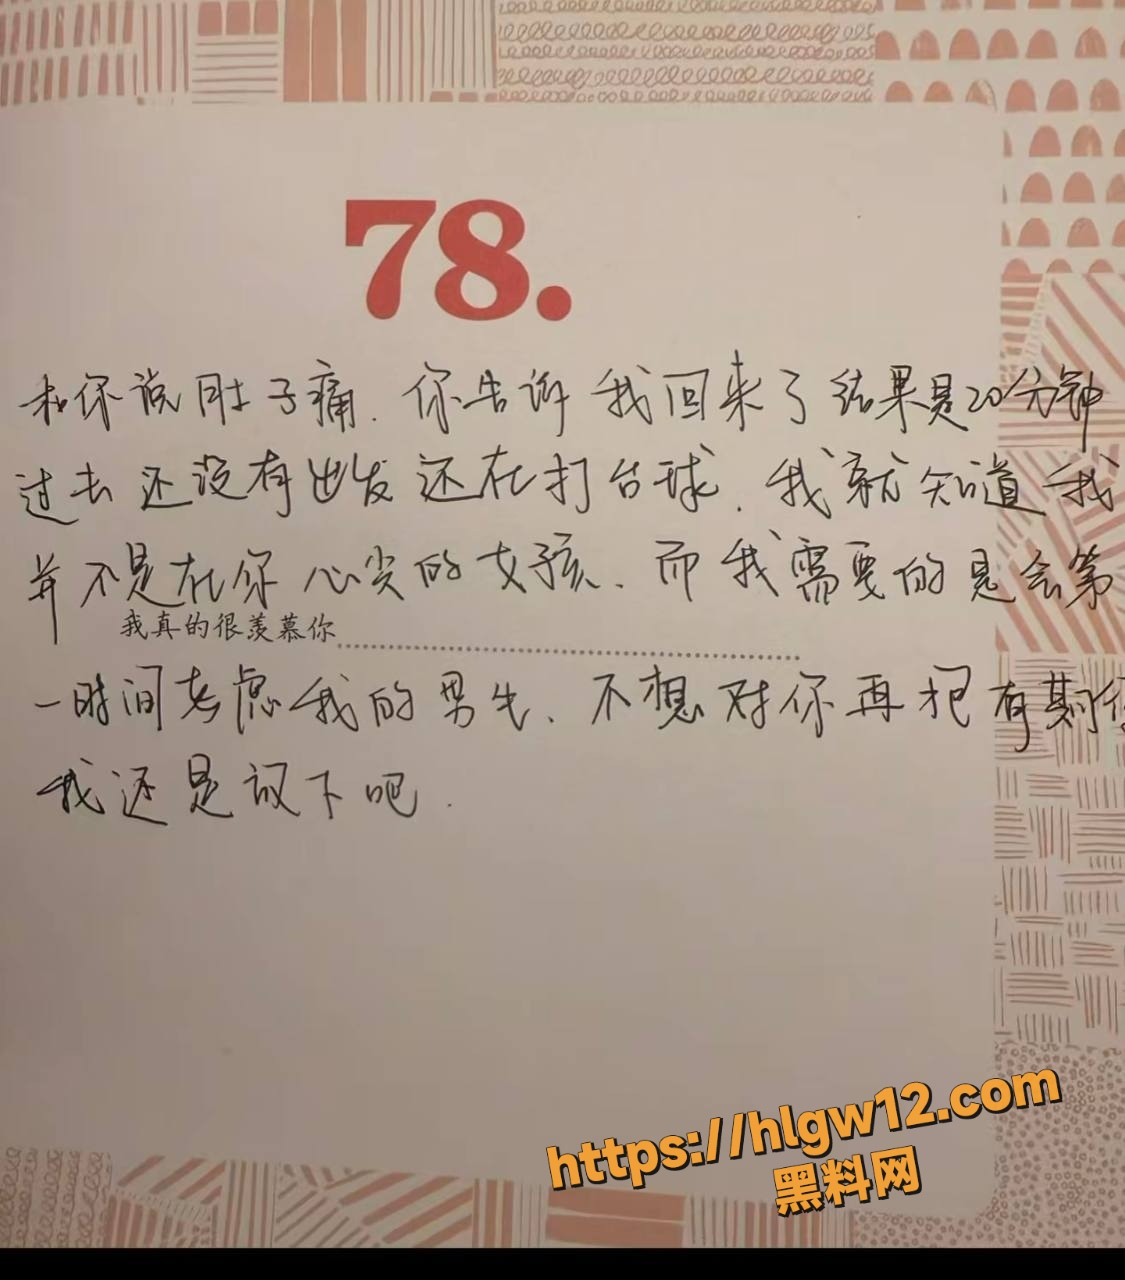 78.
和你说肚子痛.你告诉我回来了结果是20分钟
过去还没有出发还在打台球.我就知道我
并不是在你心尖的女孩、而我需要的是会第
我真的很羡慕你
一时间考虑我的男生、不想对你再抱有期待
我还是放下吧.
https://hlgw12.com
黑料网